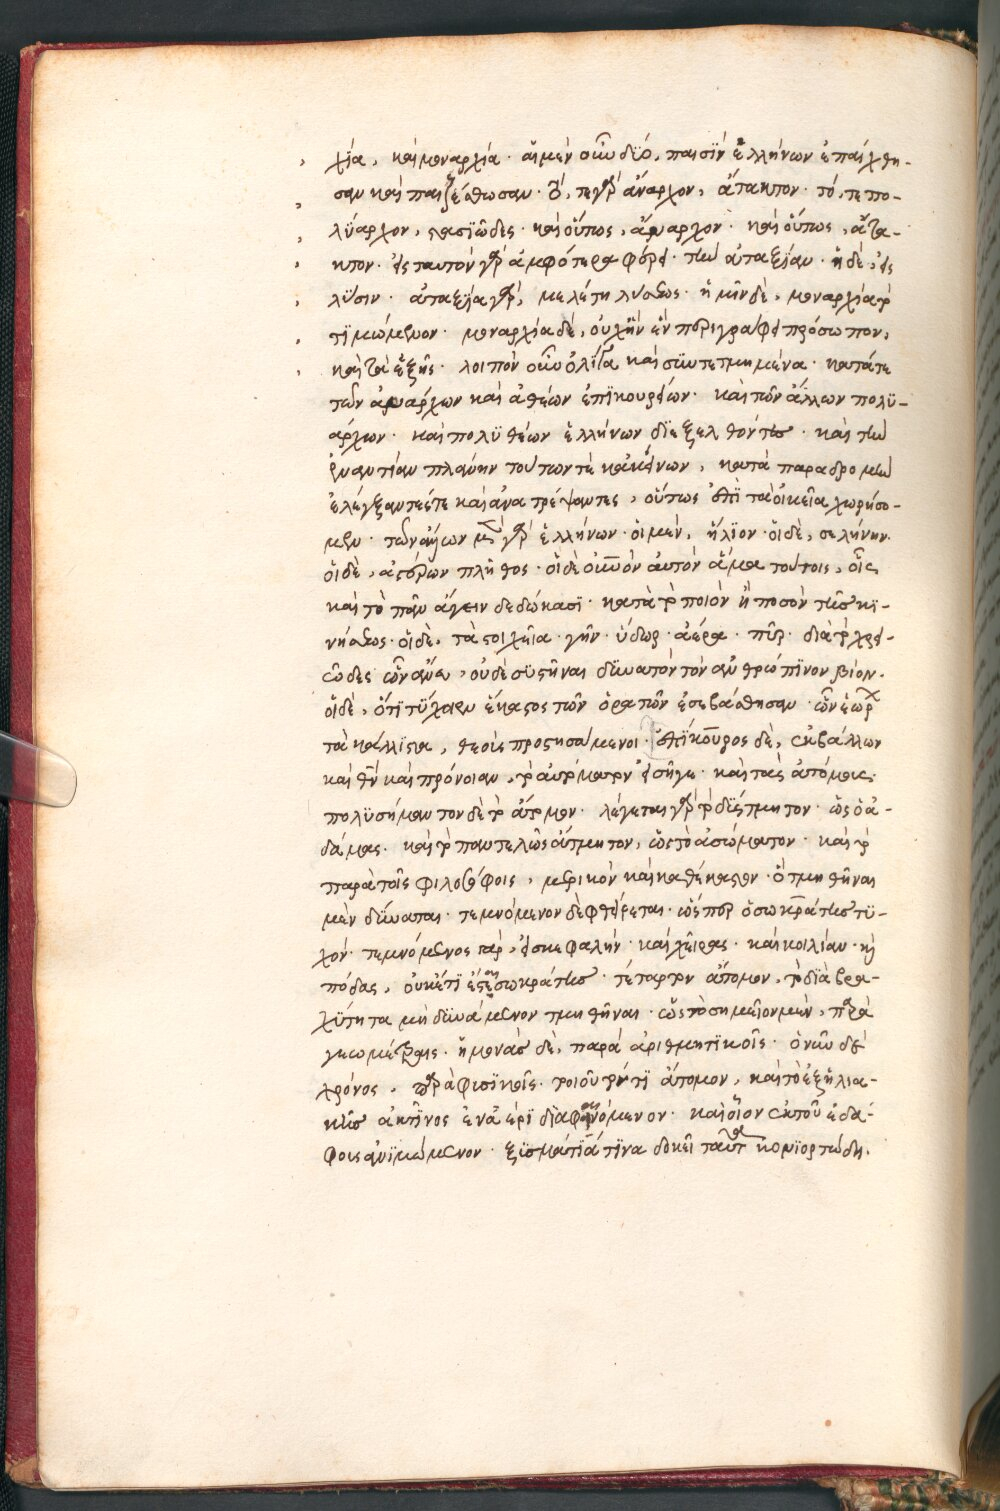 χία, καὶ μοναρχία· αἱ μὲν οὖν δύο, παισὶν ἑλλήνων ἐπαίχθη-
σαν καὶ παιζέσθωσαν· τό, τε γὰρ ἄναρχον, ἄτακτον· τό, τε πο-
λύαρχον, στασιῶδες· καὶ οὕτως, ἄναρχον· καὶ οὕτως, ἄτα-
κτον· εἰς ταυτὸν γὰρ ἀμφότερα φέρει· τὴν ἀταξίαν· ἡ δὲ, εἰς
λύσιν· ἀταξία γὰρ, μελέτη λύσεως· ἡμῖν δὲ, μοναρχία τὸ
τιμώμενον· μοναρχία δὲ, οὐχ ἣν ἓν περιγράφει πρόσωπον,
καὶ τὰ ἑξῆς· λοιπὸν οὖν ὀλίγα καὶ συντετμημένα· κατά τε
τῶν ἀνάρχων καὶ ἀθέων ἐπικουρείων· καὶ τῶν ἄλλων πολυ-
άρχων· καὶ πολυθέων ἑλλήνων διεξελθόντες· καὶ τὴν
ἐναντίαν πλάνην τούτων τὲ κακείνων, κατὰ παραδρομὴν
ἐλέγξαντές τε καὶ ἀνατρέψαντες, οὕτως ἐπὶ τὰ οἰκεῖα χωρήσο-
μεν· τῶν ἀθέων μὲν γὰρ ἑλλήνων· οἱ μὲν, ἥλιον· οἱ δὲ, σελήνην·
οἱ δὲ, ἀστέρων πλῆθος· οἱ δὲ οὐρανὸν αὐτὸν ἅμα τούτοις, οἷς
καὶ τὸ πᾶν ἄγειν δεδώκασι· κατὰ τὸ ποιὸν ἢ ποσὸν τῆς κι-
νήσεως· οἱ δὲ, τὰ στοιχεῖα· γῆν· ὕδωρ· ἀέρα· πῦρ· διὰ τὸ χρει-
ῶδες· ὧν ἄνευ, οὐδὲ συστῆναι δυνατὸν τὸν ἀνθρώπινον βίον·
οἱ δὲ, ὅτι τύχοιεν ἕκαστος τῶν ὁρατῶν ἐσεβάσθησαν· ὧν ἑώρων
τὰ κάλλιστα, θεοὺς προστησάμενοι· ἐπίκουρος δὲ, ἐκβάλλων
καὶ θεὸν καὶ πρόνοιαν, τὸ αὐτόματον εἰσῆγε· καὶ τὰς ἀτόμους·
πολυσήμαντον δὲ τὸ ἄτομον· λέγεται γὰρ τὸ δύστμητον· ὡς ὁ ἀ-
δάμας· καὶ τὸ παντελῶς ἄτμητον, ὡς τὸ ἀσώματον· καὶ τὸ
παρὰ τοῖς φιλοσόφοις, μερικὸν καὶ καθέκαστον· ὃ τμηθῆναι
μὲν δύναται· τεμνόμενον δὲ φθείρεται· ὥσπερ ὁ σωκράτης τυ-
χόν· τεμνόμενος γὰρ, εἰς κεφαλήν· καὶ χεῖρας· καὶ κοιλίαν· καὶ
πόδας, οὐκέτι ἐστὶ σωκράτης· τέταρτον ἄτομον, τὸ διὰ βρα-
χύτητα μὴ δυνάμενον τμηθῆναι· ὡς τὸ σημεῖον μὲν, παρὰ
γεωμέτραις· ἡ μονὰς δὲ, παρὰ ἀριθμητικοῖς· ὁ νῦν δὲ
χρόνος, παρὰ φυσικοῖς· τοιοῦτόν τι ἄτομον, καὶ τὸ ἐξ ἡλια-
κῆς ἀκτῖνος ἐν ἀέρι διαφαινόμενον· καὶ οἷον ἐκ τοῦ ἐδά-
φους ἀνιμώμενον· ξυσμάτιά τινα δοκεῖ ταῦτα κονιορτώδη.